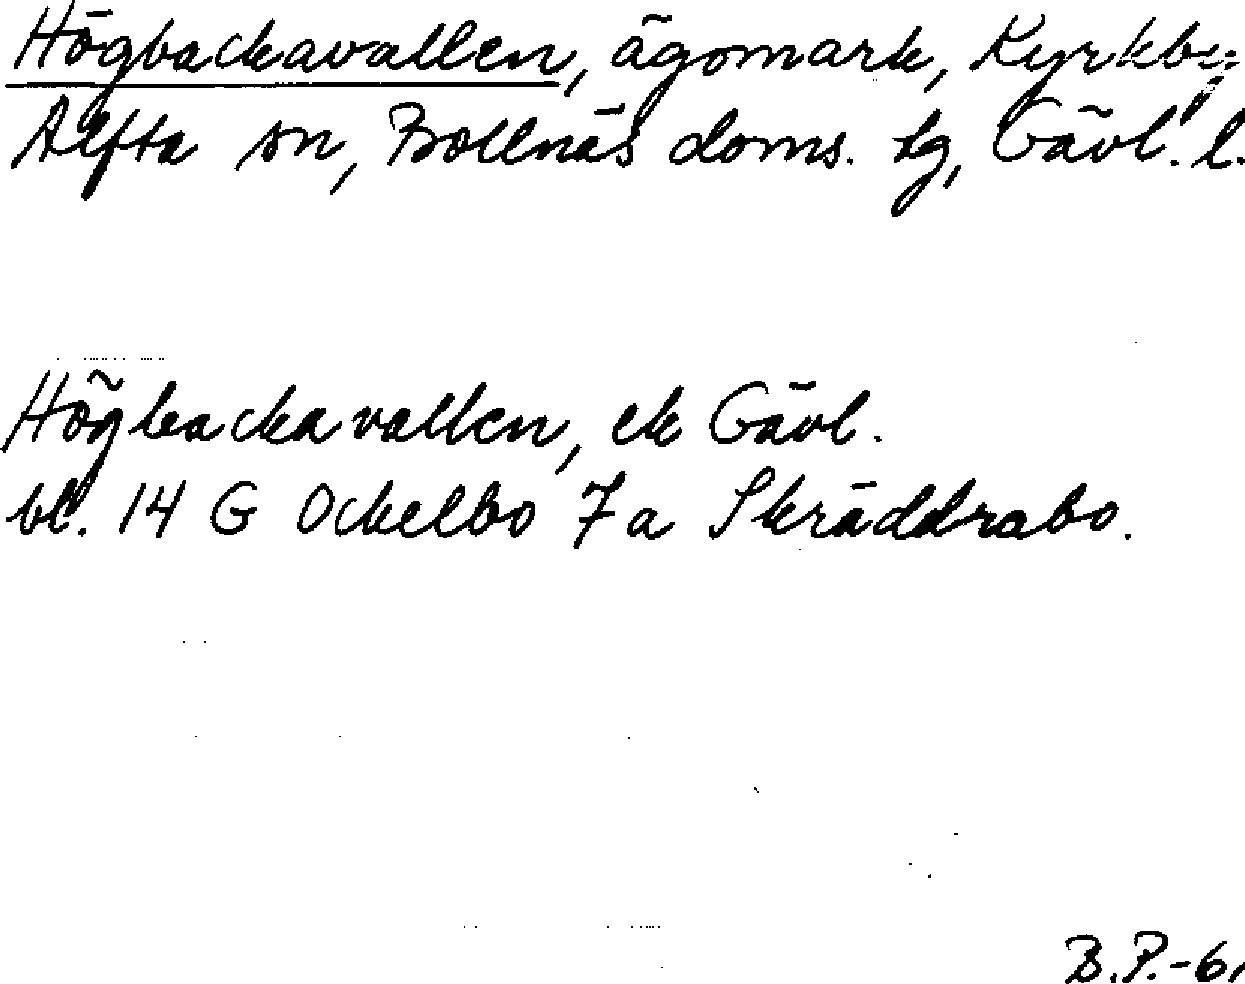 Högbackavallen, ägomark, Kyrkby,
Alfta sn, Bollnäs doms. lg, Gävl. l.
Högbackavallen, ek Gävl.
bl. 14 G Ockelbo 7a Skräddrabo.
B.P.-6